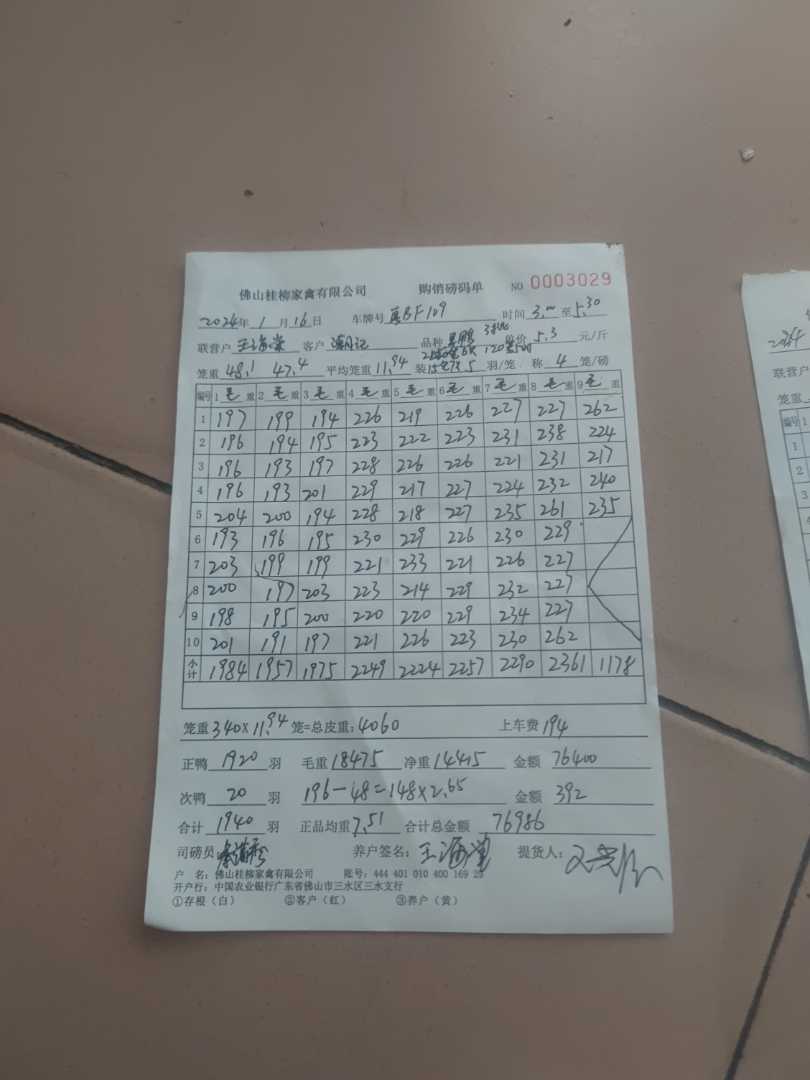 佛山桂柳家禽有限公司 购销磅码单 NO 0003029
2024年 1 月 16 日 车牌号 BF109 时间 3.00 至 5.30
联营户 王海棠 客户 潮记 品种 单价 5.3 元/斤
笼重 48.1 47.4 平均笼重 11.94 装 羽/笼 称 4 笼/磅
编号 1 毛 重 2 毛 重 3 毛 重 4 毛 重 5 毛 重 6 毛 重 7 毛 重 8 毛 重 9 毛 重
1 197 199 194 226 219 226 227 227 262
2 196 194 195 223 222 223 231 238 224
3 196 193 197 228 226 226 221 231 217
4 196 193 201 229 217 227 224 232 240
5 204 200 194 228 218 227 235 261 235
6 193 196 195 230 229 226 230 229
7 203 199 199 221 233 221 226 227
8 200 197 203 223 214 229 232 227
9 198 195 200 220 220 229 234 227
10 201 191 197 221 226 223 230 262
小计 1984 1957 1975 2249 2224 2257 2290 2361 1178
笼重 340 × 11.94 笼=总皮重: 4060 上车费 194
正鸭 1920 羽 毛重 18475 净重 14415 金额 76400
次鸭 20 羽 196-48=148×2.65 金额 392
合计 1940 羽 正品均重 7.51 合计总金额 76986
司磅员 养户签名: 王海棠 提货人:
户 名: 佛山桂柳家禽有限公司 账号: 444 401 010 400 169 23
开户行: 中国农业银行广东省佛山市三水区三水支行
①存根（白） ②客户（红） ③养户（黄）
2024
联营户
笼重
编号 1
1
2
3
4
5
6
7
8